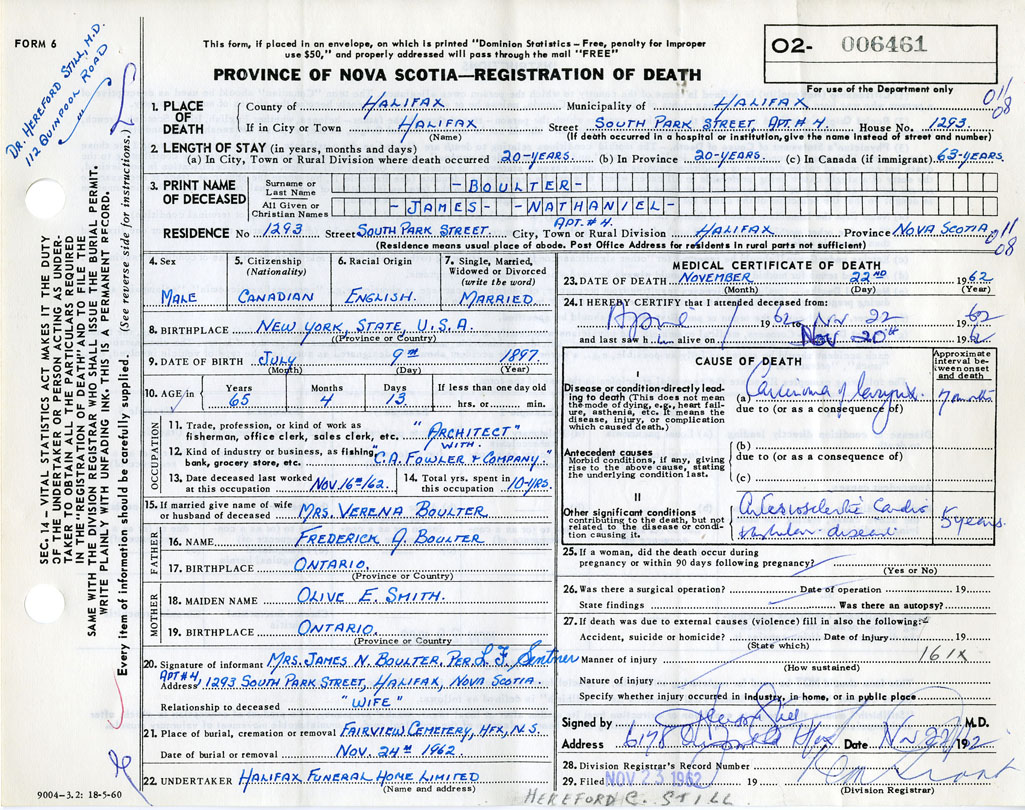 FORM 6
DR. HEREFORD STILL, M.D.
112 QUINPOOL ROAD
This form, if placed in an envelope, on which is printed "Dominion Statistics – Free, penalty for improper
use $50," and properly addressed will pass through the mail "FREE"
PROVINCE OF NOVA SCOTIA—REGISTRATION OF DEATH
O2- 006461
For use of the Department only
011
08
SEC. 14 – VITAL STATISTICS ACT MAKES IT THE DUTY
OF THE UNDERTAKER OR PERSON ACTING AS UNDER-
TAKER TO OBTAIN ALL THE PARTICULARS REQUIRED
IN THE "REGISTRATION OF DEATH" AND TO FILE THE
SAME WITH THE DIVISION REGISTRAR WHO SHALL ISSUE THE BURIAL PERMIT.
WRITE PLAINLY WITH UNFADING INK. THIS IS A PERMANENT RECORD.
Every item of information should be carefully supplied. (See reverse side for instructions.)
1. PLACE OF DEATH
County of HALIFAX Municipality of HALIFAX
If in City or Town HALIFAX Street SOUTH PARK STREET, APT. # 4. House No. 1293.
(Name) (If death occurred in a hospital or institution, give the name instead of street and number)
2. LENGTH OF STAY (in years, months and days)
(a) In City, Town or Rural Division where death occurred 20-YEARS. (b) In Province 20-YEARS. (c) In Canada (if immigrant) 63-YEARS.
3. PRINT NAME OF DECEASED
Surname or Last Name -BOULTER-
All Given or Christian Names -JAMES- -NATHANIEL-
APT. # 4.
RESIDENCE No. 1293 Street SOUTH PARK STREET. City, Town or Rural Division HALIFAX Province NOVA SCOTIA
011
08
(Residence means usual place of abode. Post Office Address for residents in rural parts not sufficient)
4. Sex
MALE
5. Citizenship
(Nationality)
CANADIAN
6. Racial Origin
ENGLISH.
7. Single, Married,
Widowed or Divorced
(write the word)
MARRIED
8. BIRTHPLACE NEW YORK, STATE, U.S.A.
(Province or Country)
9. DATE OF BIRTH JULY 9TH 1897.
(Month) (Day) (Year)
10. AGE in
Years 65
Months 4
Days 13
If less than one day old
hrs. or min.
OCCUPATION
11. Trade, profession, or kind of work as "ARCHITECT"
fisherman, office clerk, sales clerk, etc.
WITH.
12. Kind of industry or business, as fishing, "C.A. FOWLER & COMPANY."
bank, grocery store, etc.
13. Date deceased last worked at this occupation NOV. 16TH/62.
14. Total yrs. spent in this occupation 10-YRS.
15. If married give name of wife or husband of deceased MRS. VERENA BOULTER
FATHER
16. NAME FREDERICK J. BOULTER
17. BIRTHPLACE ONTARIO.
(Province or Country)
MOTHER
18. MAIDEN NAME OLIVE E. SMITH.
19. BIRTHPLACE ONTARIO.
(Province or Country)
20. Signature of informant MRS. JAMES N. BOULTER. PER.
APT # 4,
Address 1293 SOUTH PARK STREET, HALIFAX, NOVA SCOTIA.
Relationship to deceased "WIFE"
21. Place of burial, cremation or removal FAIRVIEW CEMETERY, HFX, N.S.
Date of burial or removal NOV. 24TH 1962
22. UNDERTAKER HALIFAX FUNERAL HOME LIMITED
(Name and address)
9004–3.2: 18-5-60
MEDICAL CERTIFICATE OF DEATH
23. DATE OF DEATH NOVEMBER 22ND 1962
(Month) (Day) (Year)
24. I HEREBY CERTIFY that I attended deceased from:
April 1962 to Nov 22 1962
and last saw him alive on Nov 20th 1962
CAUSE OF DEATH
Approximate interval between onset and death
I
Disease or condition directly lead-
ing to death (This does not mean
the mode of dying, e.g., heart fail-
ure, asthenia, etc. It means the
disease, injury, or complication
which caused death.)
(a) Carcinoma of larynx 7 months
due to (or as a consequence of)
Antecedent causes
Morbid conditions, if any, giving
rise to the above cause, stating
the underlying condition last.
(b)
due to (or as a consequence of)
(c)
II
Other significant conditions
contributing to the death, but not
related to the disease or condi-
tion causing it.
Arteriosclerotic Cardio
vascular disease
5 years
25. If a woman, did the death occur during
pregnancy or within 90 days following pregnancy?
(Yes or No)
26. Was there a surgical operation? Date of operation 19
State findings Was there an autopsy?
27. If death was due to external causes (violence) fill in also the following:
Accident, suicide or homicide? Date of injury 19
(State which)
Manner of injury 161X
(How sustained)
Nature of injury
Specify whether injury occurred in industry, in home, or in public place
Signed by M.D.
Address 6178 Hfx Date Nov 22 1962
28. Division Registrar's Record Number
29. Filed NOV 23 1962 19
(Division Registrar)
HEREFORD C. STILL.